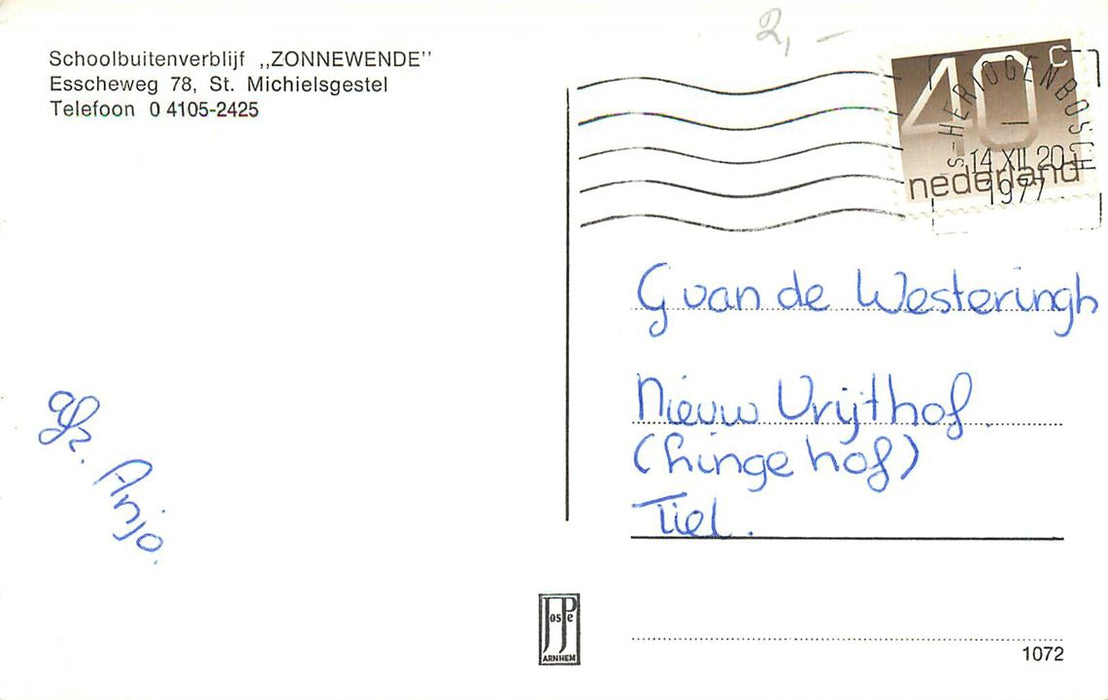 Schoolbuitenverblijf „ZONNEWENDE”
Esscheweg 78, St. Michielsgestel
Telefoon 0 4105-2425
2,-
40 c
nederland
's-HERTOGENBOSCH
14 XII 20
1977
G van de Westeringh
Nieuw Vrijthof.
(Lingehof)
Tiel.
afz. Anjo.
JosPe
ARNHEM
1072